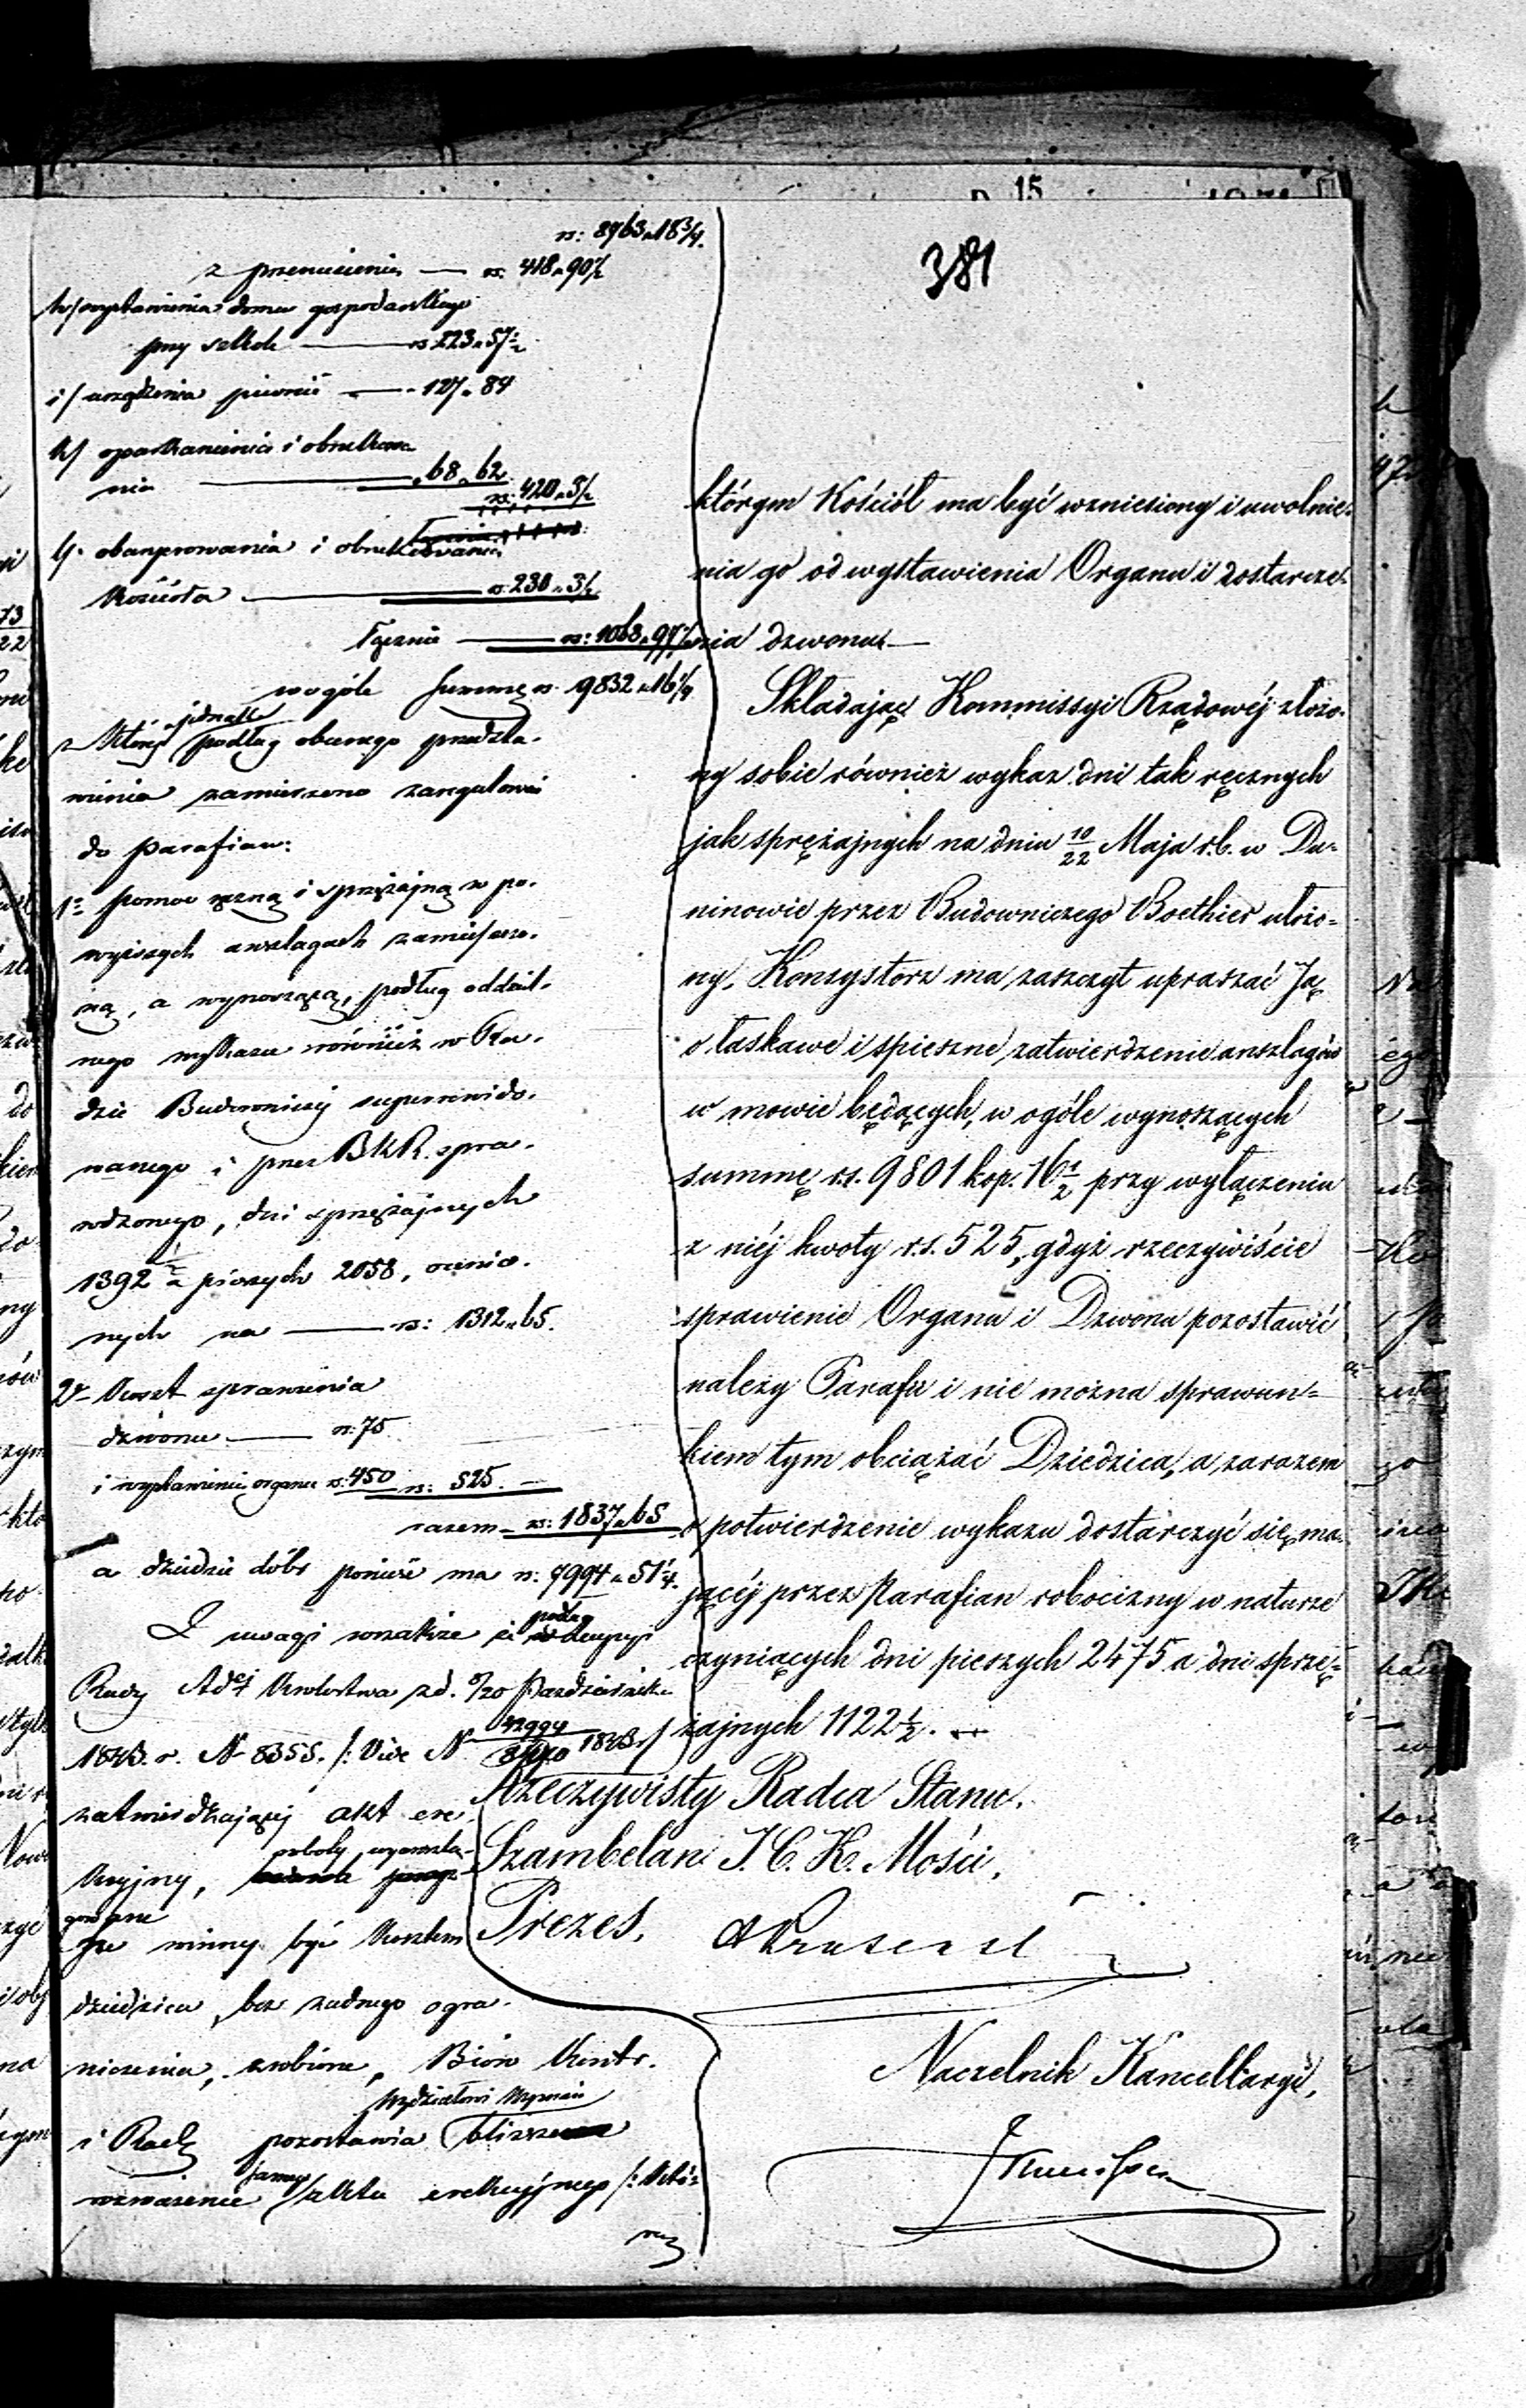 15
381
rs: 8763„18 3/4.
z przeniesienia — rs. 418„90 1/2
h/ wystawienia domu gospodarskiego
przy szkole — rs 223„57 1/2
i/ urządzenia piwnic — 127„84
k/ oparkanienia i obrukowa
nia — 68„62
rs: 420„3 1/2
l/. obamperowania i obrukowania
Kościoła — rs. 230„3 1/2
łącznie — rs: 1068„97 1/2
wogóle summę rs. 9832„16 1/4
z której jednak podług obecnego przedsta-
wienia zamierzono zaregulować
do parafian:
1° pomoc ręczną i sprzężajną w po-
wyższych anszlagach zamieszczo-
ną, a wynoszącą, podług oddziel-
nego wykazu również w Ra-
dzie Budowniczej superrewido-
wanego i przez BKR. spra-
wdzonego, dni sprzężajnych
1392 1/2 a pieszych 2058, ocenio-
nych na — rs: 1312„65.
2° Koszt sprawienia
dzwonu — rs. 75
i wystawienia organu rs. 450 rs: 525. —
razem — rs: 1837„65
a dziedzic dóbr ponieść ma rs. 7994„51 1/4.
Z uwagi wszakże iż podług decyzyi
Rady Ad<sup>ej</sup> Królestwa z d. 8/20 Października
1843. r. N 8355. /: Vide N 42994/ 1843 r/
zatwierdzającej akt ere-
kcyjny, roboty wyanszla-
gowane winny być kosztem
dziedzica, bez żadnego ogra-
niczenia, zrobione, Bióro Kontr.
i Rach pozostawia Wydziałowi Wyznań bliższe
rozważenie samego aktu erekcyjnego /: któ-
ren
którym Kościół ma być wzniesiony i uwolnie-
nia go od wystawienia Organu i dostarcze-
nia dzwonu. —
Składając Kommissyi Rządowéj złożo-
ny sobie również wykaz dni tak ręcznych
jak sprężajnych na dniu 10/22 Maja r.b. w Du-
ninowie przez Budowniczego Boethier ułożo-
ny, Konsystorz ma zaszczyt upraszać Ją
o łaskawe i spieszne zatwierdzenie anszlagów
w mowie będących, w ogóle wynoszących
summę r.s. 9801 kop. 16 1/2 przy wyłączeniu
z niéj kwoty r.s. 525, gdyż rzeczywiście
sprawienie Organu i Dzwonu pozostawić
należy Parafii i nie można sprawun-
kiem tym obciążać Dziedzica, a zarazem
o potwierdzenie wykazu dostarczyć się ma-
jącéj przez Parafian robocizny w naturze
czyniących dni pieszych 2475 a dni sprzę-
żajnych 1122 1/2. —
Rzeczywisty Radca Stanu,
Szambelan J. C. K. Mości,
Prezes,
Naczelnik Kancellaryi,